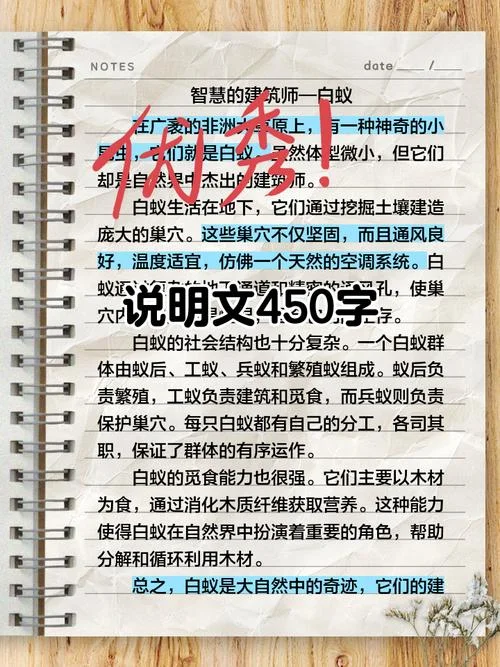 NOTES
date ____ / ___
智慧的建筑师—白蚁
在广袤的非洲大草原上，有一种神奇的小
昆虫，它们就是白蚁。虽然体型微小，但它们
却是自然界中杰出的建筑师。
优秀！
白蚁生活在地下，它们通过挖掘土壤建造
庞大的巢穴。这些巢穴不仅坚固，而且通风良
好，温度适宜，仿佛一个天然的空调系统。白
蚁
孔，使巢
说明文450字
穴内
存。
白蚁的社会结构也十分复杂。一个白蚁群
体由蚁后、工蚁、兵蚁和繁殖蚁组成。蚁后负
责繁殖，工蚁负责建筑和觅食，而兵蚁则负责
保护巢穴。每只白蚁都有自己的分工，各司其
职，保证了群体的有序运作。
白蚁的觅食能力也很强。它们主要以木材
为食，通过消化木质纤维获取营养。这种能力
使得白蚁在自然界中扮演着重要的角色，帮助
分解和循环利用木材。
总之，白蚁是大自然中的奇迹，它们的建